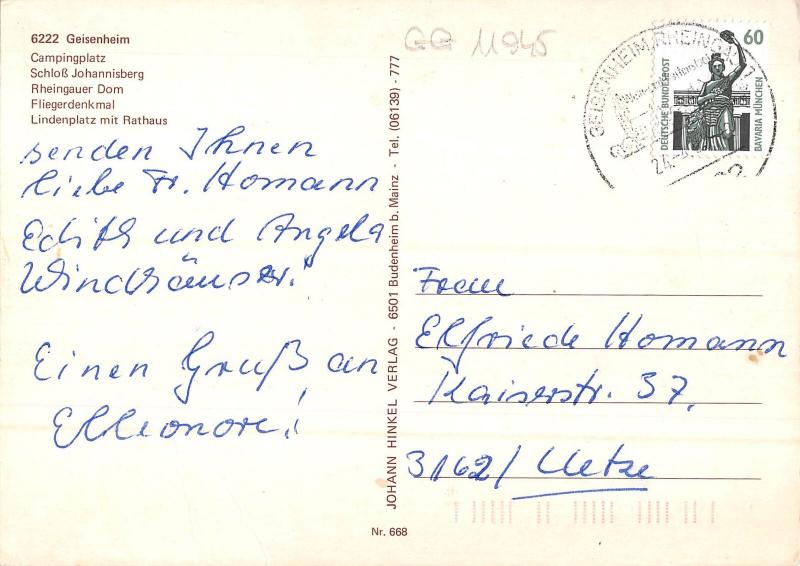 6222 Geisenheim
Campingplatz
Schloß Johannisberg
Rheingauer Dom
Fliegerdenkmal
Lindenplatz mit Rathaus
senden Ihnen
liebe Fr. Homann
Edith und Angela
Windhäuser!
Einen Gruß an
Elleonore!
JOHANN HINKEL VERLAG - 6501 Budenheim b. Mainz - Tel. (06139) - 777
Nr. 668
GG 11945
GEISENHEIM, RHEINGAU
60
DEUTSCHE BUNDESPOST
BAVARIA MÜNCHEN
Frau
Elfriede Homann
Kaiserstr. 37,
3162/ Uetze